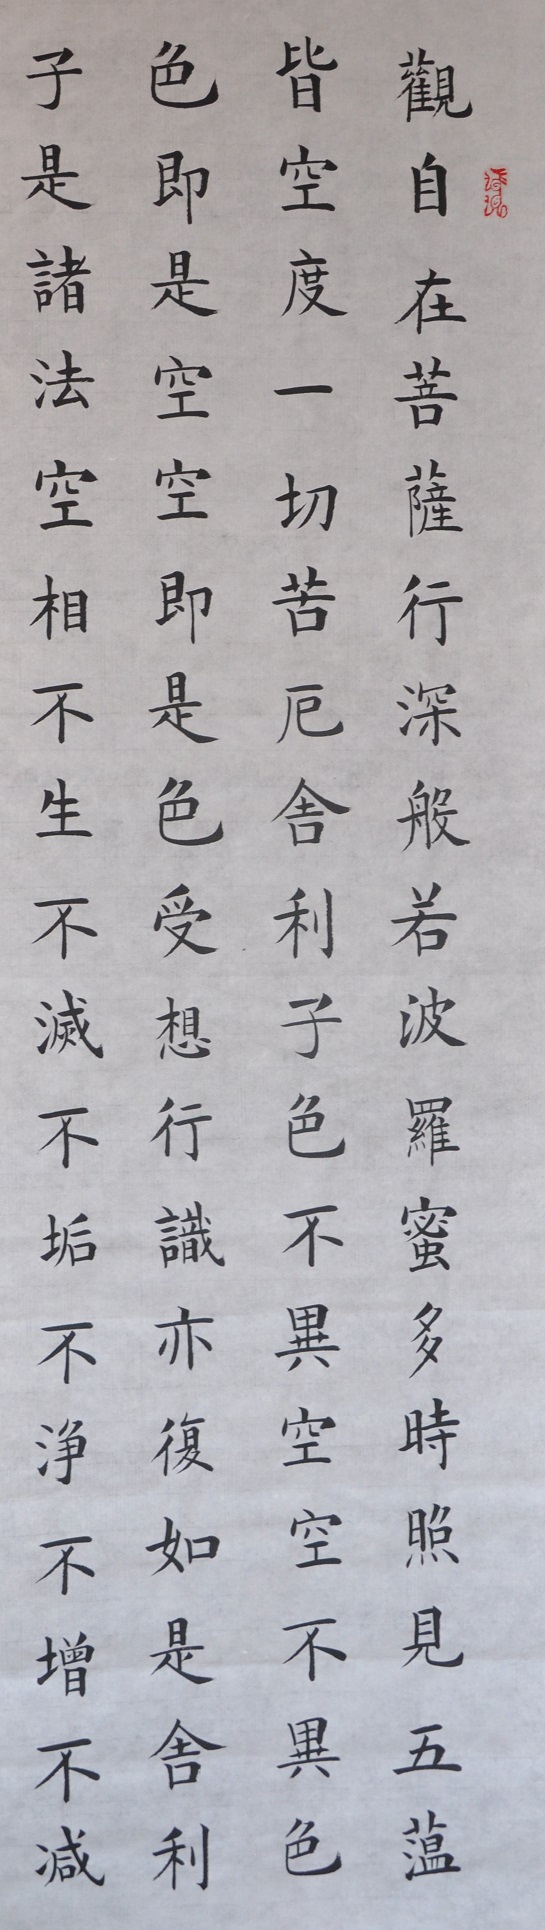 觀自在菩薩行深般若波羅蜜多時照見五蕰
皆空度一切苦厄舍利子色不異空空不異色
色即是空空即是色受想行識亦復如是舍利
子是諸法空相不生不滅不垢不浄不增不減